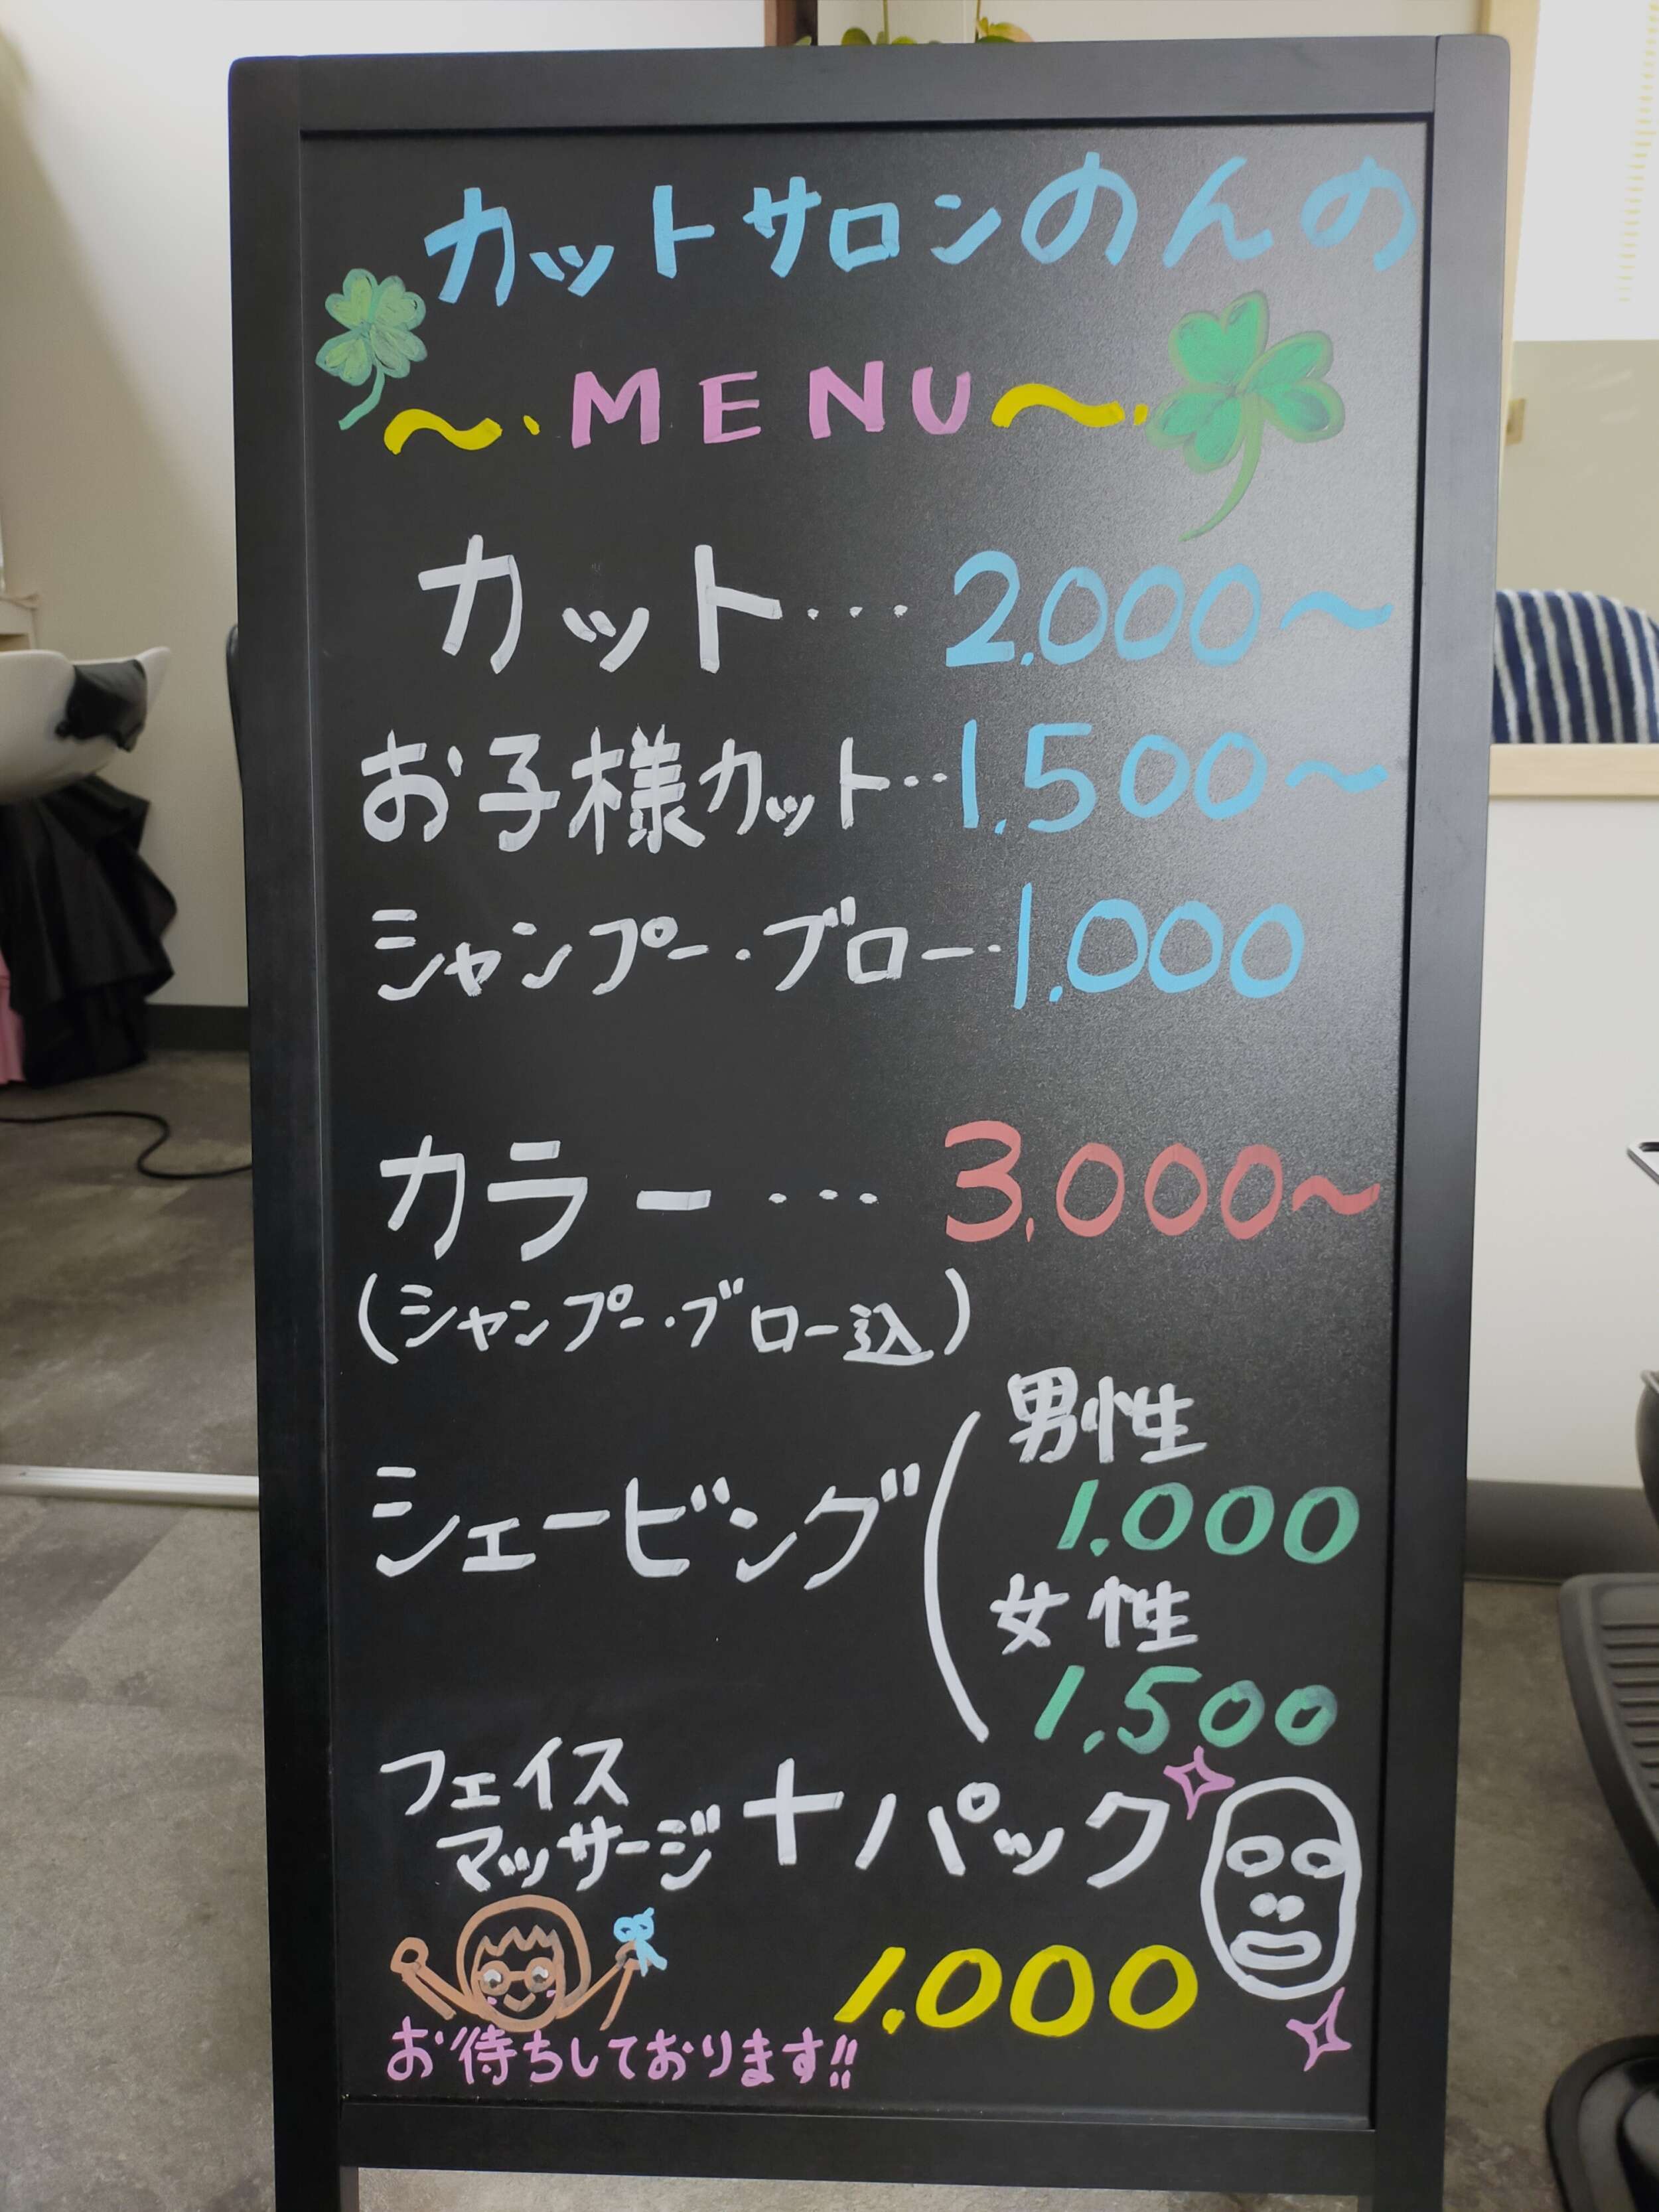 カットサロンのんの
〜・MENU〜・
カット…2,000〜
お子様カット‥1,500〜
シャンプー・ブロー・1,000
カラー…3,000〜
(シャンプー・ブロー込)
シェービング(男性
1,000
女性
1,500
フェイス
マッサージ+パック
1,000
お待ちしております!!